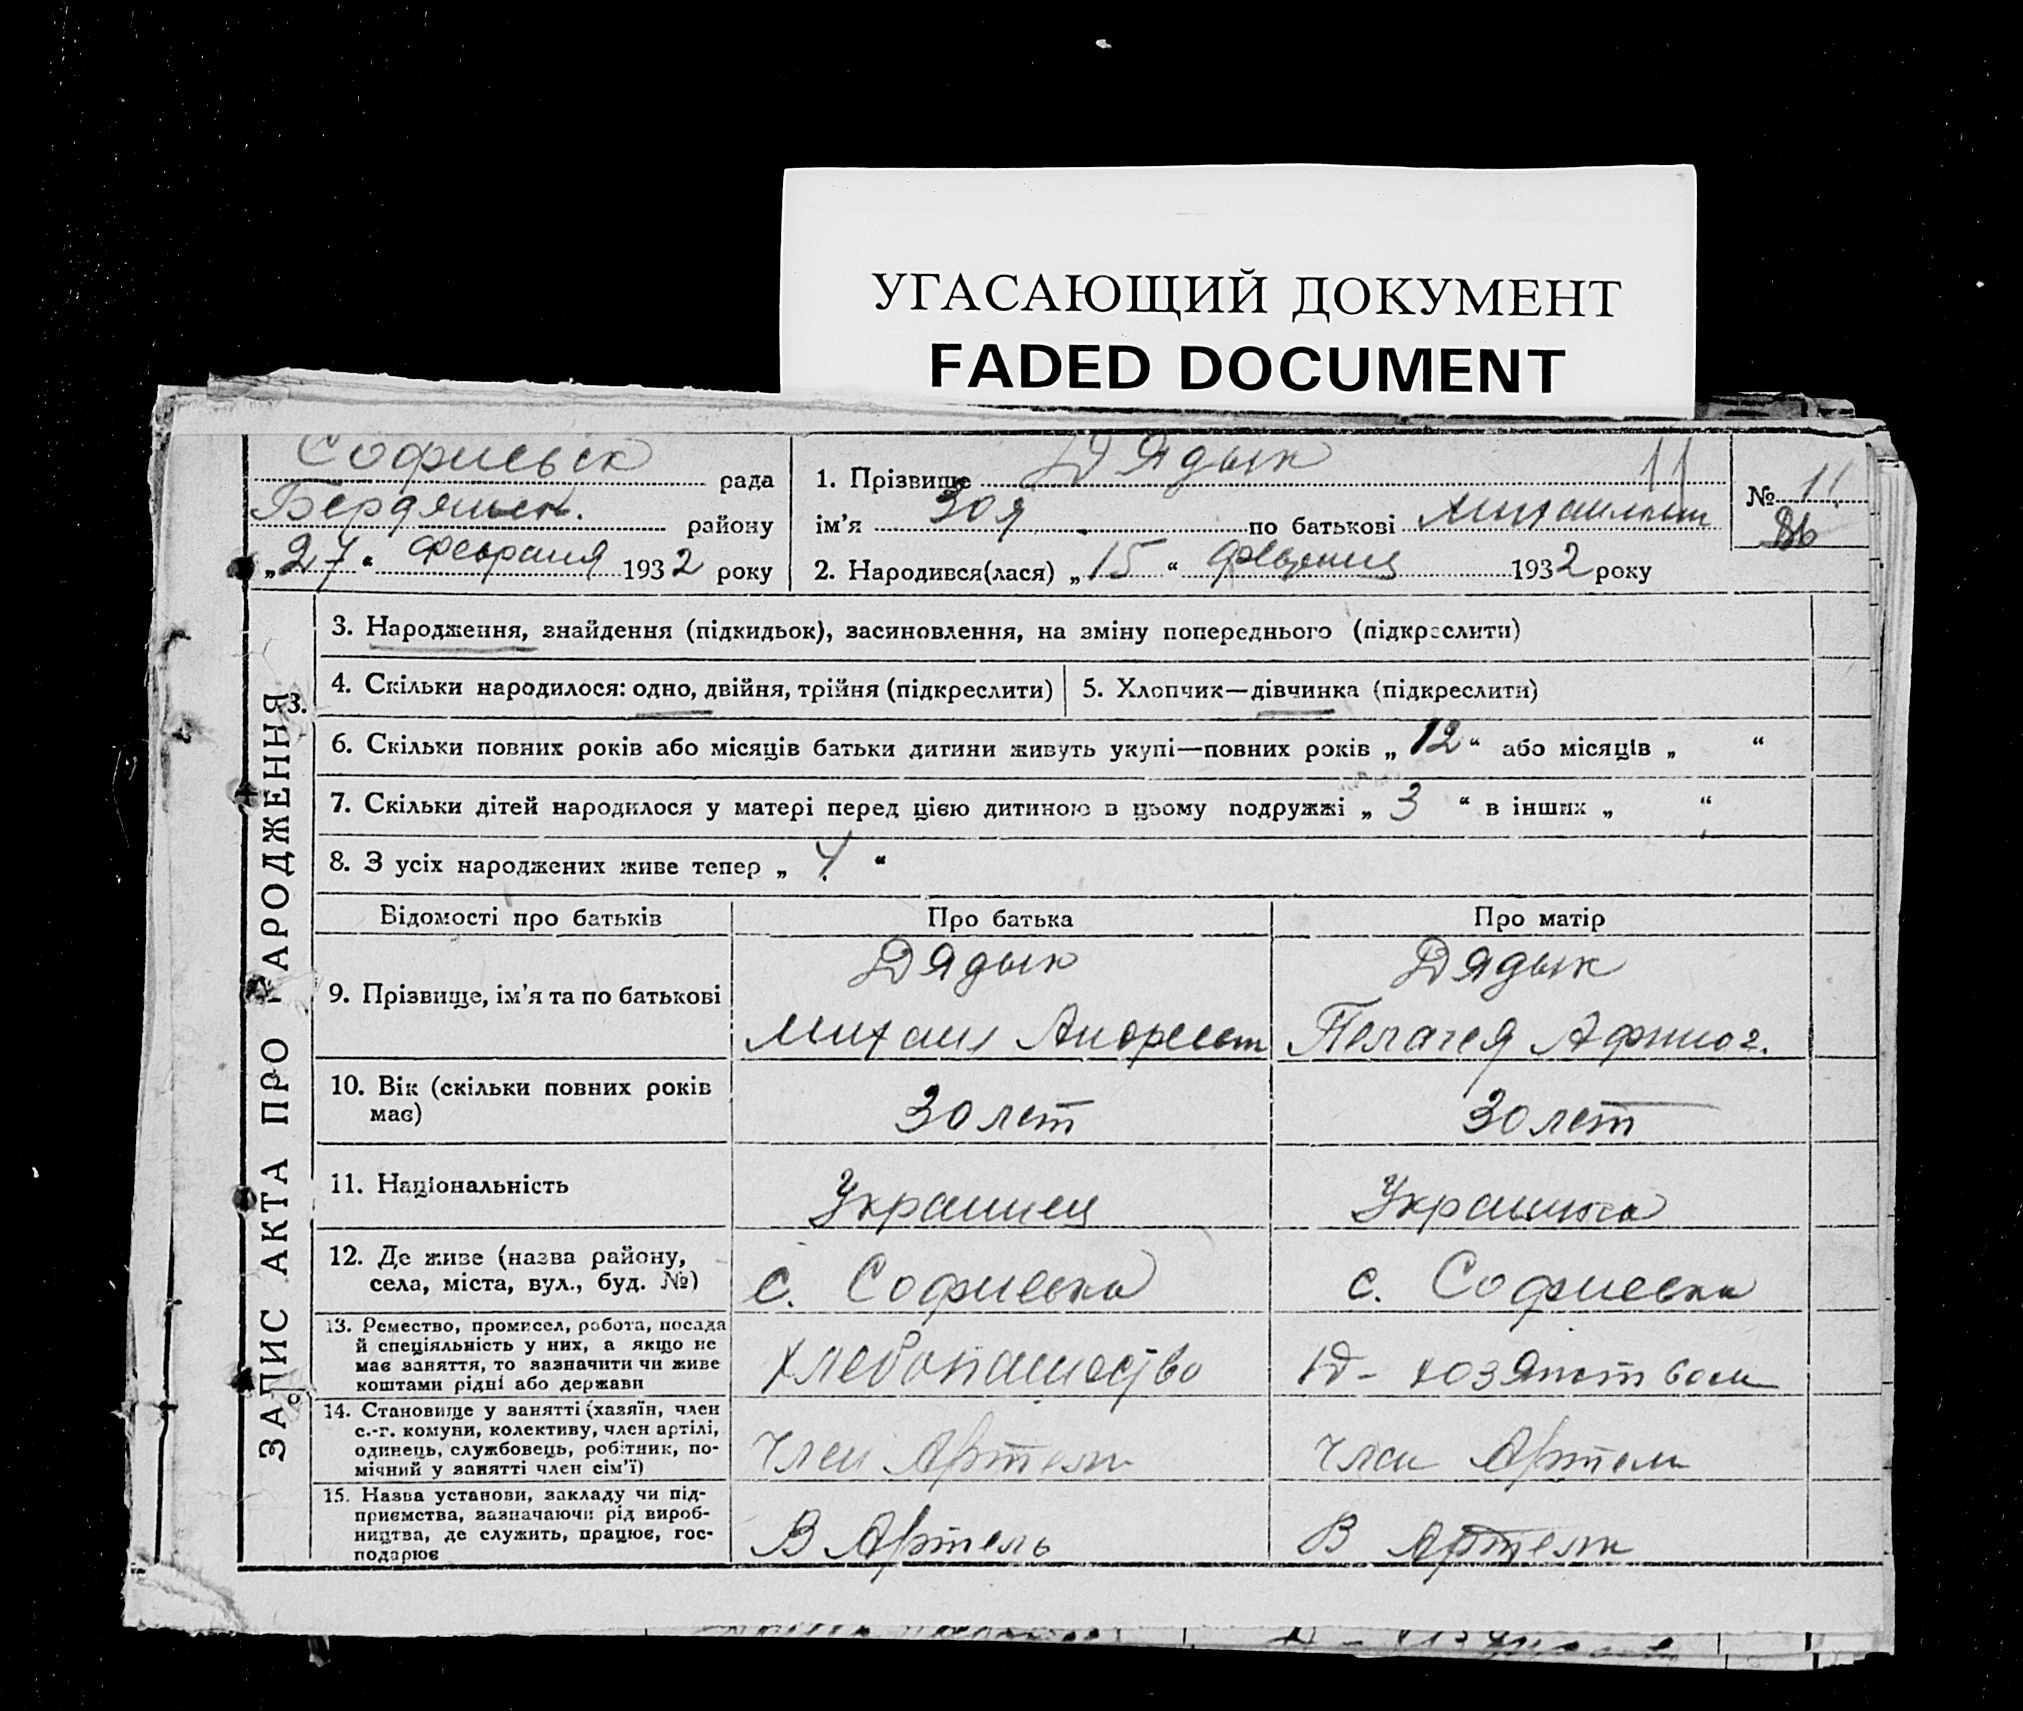 УГАСАЮЩИЙ ДОКУМЕНТ
FADED DOCUMENT
Софиевск рада
Бердянск. району
„27“ февраля 1932 року
1. Прізвище Дядык 11
ім’я Зоя по батькові
2. Народився(лася) „15“ февраля 1932 року
№ 11
ЗАПИС АКТА ПРО НАРОДЖЕННЯ
3. Народження, знайдення (підкидьок), засиновлення, на зміну попереднього (підкреслити)
4. Скільки народилося: одно, двійня, трійня (підкреслити)
5. Хлопчик—дівчинка (підкреслити)
6. Скільки повних років або місяців батьки дитини живуть укупі—повних років „12“ або місяців „ “
7. Скільки дітей народилося у матері перед цією дитиною в цьому подружжі „3“ в інших „ “
8. З усіх народжених живе тепер „4“
Відомості про батьків Про батька Про матір
9. Прізвище, ім’я та по батькові
Дядык
Михаил Андреевич
Дядык
Пелагея
10. Вік (скільки повних років
має)
30 лет
30 лет
11. Національність
Украинец
Украинка
12. Де живе (назва району,
села, міста, вул., буд. №)
с. Софиевка
с. Софиевка
13. Ремество, промисел, робота, посада
й спеціяльність у них, а якщо не
має заняття, то зазначити чи живе
коштами рідні або держави
хлебопашество
14. Становище у занятті (хазяїн, член
с.-г. комуни, колективу, член артілі,
одинець, службовець, робітник, по-
мічний у занятті член сім’ї)
Член Артели
Член Артели
15. Назва установи, закладу чи під-
приємства, зазначаючи рід вироб-
ництва, де служить, працює, гос-
подарює
В Артель
В Артели